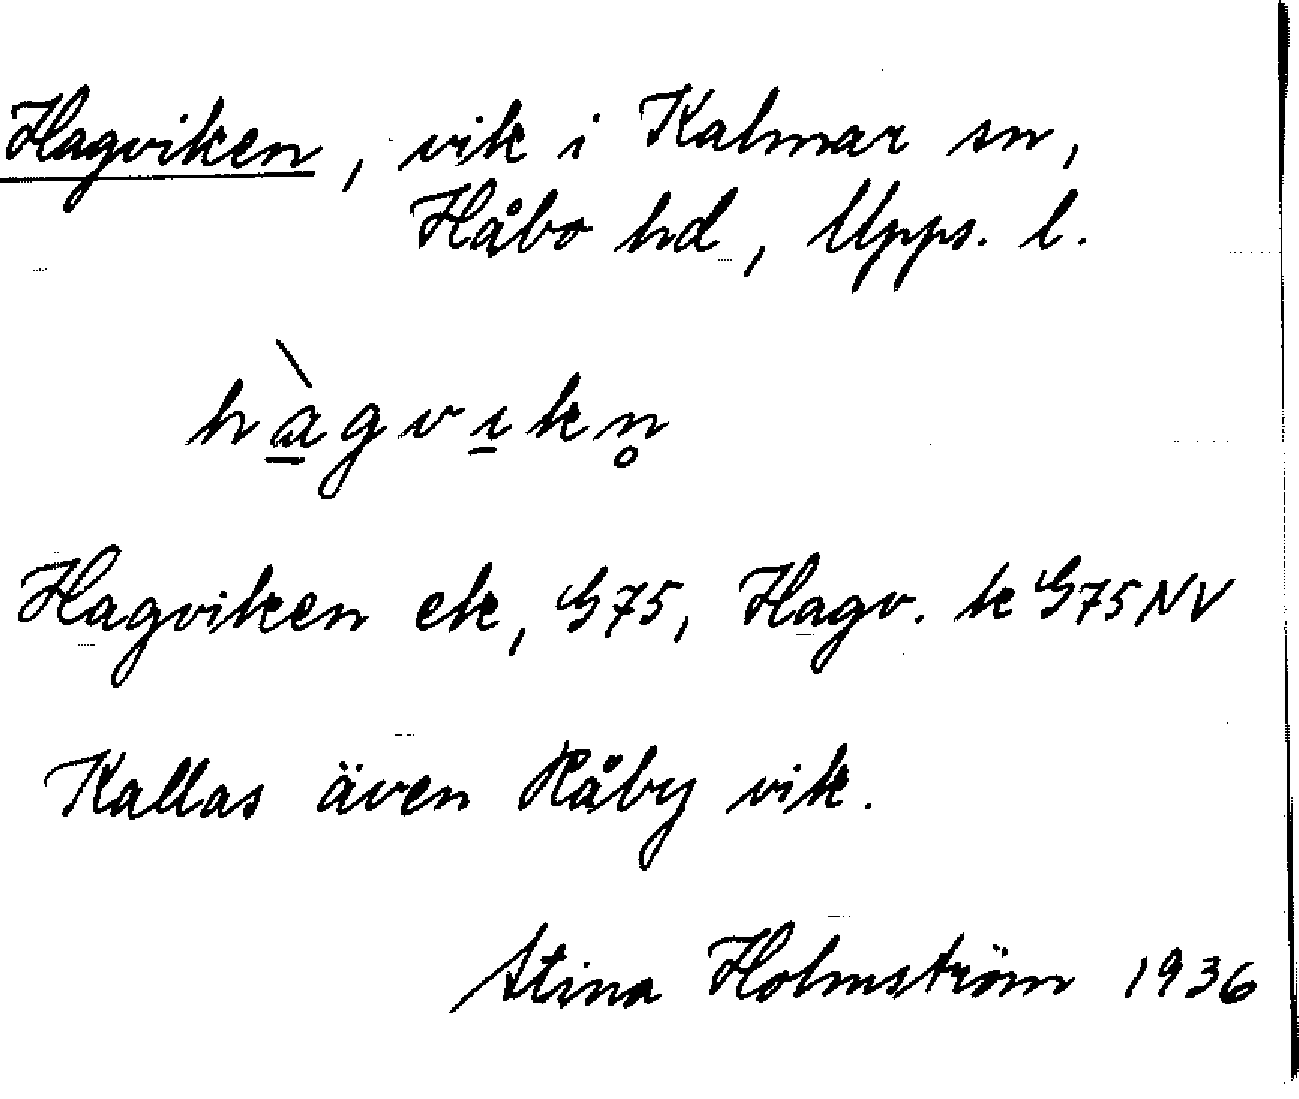 Hagviken, vik i Kalmar sn,
Håbo hd, Upps. l.
hàgvıkn̥
Hagviken ek, G75, Hagv. k G75NV
Kallas även Råby vik.
Stina Holmström 1936